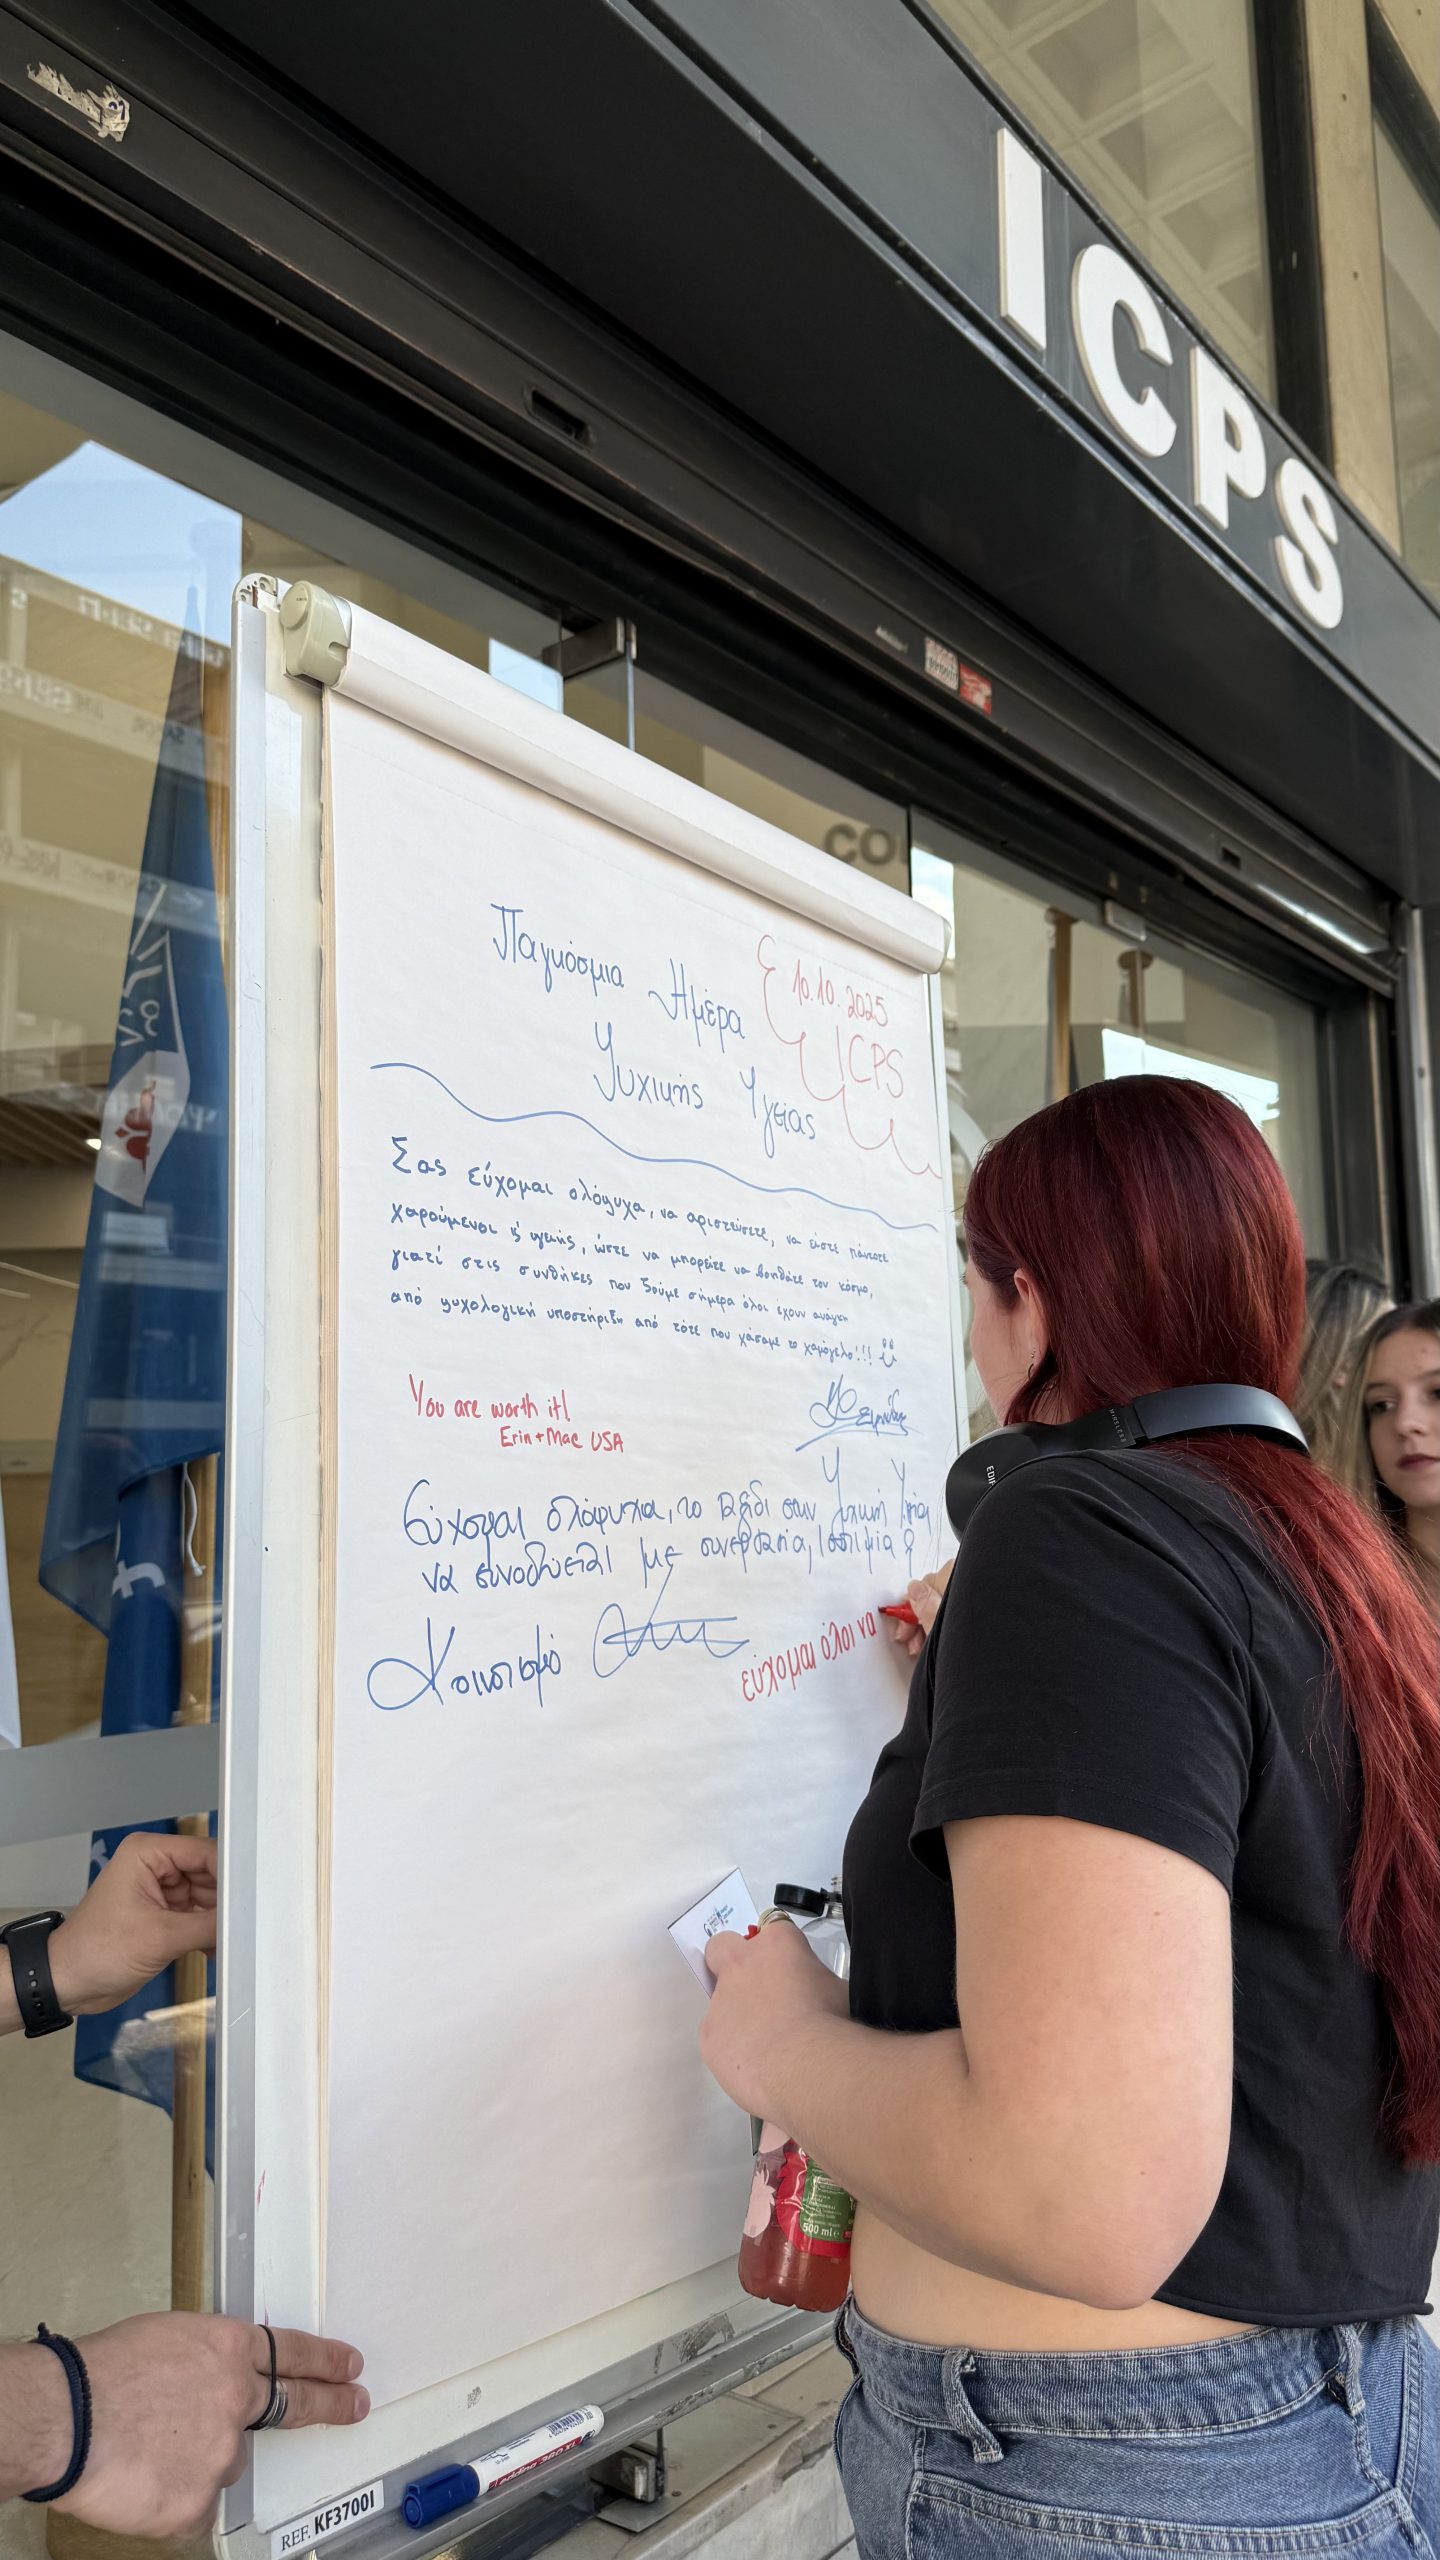 ICPS
COU
Παγκόσμια Ημέρα
Ψυχικής Υγείας
10.10.2025
ICPS
Σας εύχομαι ολόψυχα, να αριστεύσετε, να είστε πάντοτε
χαρούμενοι & υγιής, ώστε να μπορείτε να βοηθάτε τον κόσμο,
γιατί στις συνθήκες που ζούμε σήμερα όλοι έχουν ανάγκη
από ψυχολογική υποστήριξη από τότε που χάσαμε το χαμόγελο!!!
You are worth it!
Erin + Mac USA
Εύχομαι ολόψυχα, το ταξίδι στην Ψυχική Υγεία
να συνοδεύεται με
εύχομαι όλοι να
EDIF
WIRELESS
500 ml e
edding 380 XL
REF. KF37001